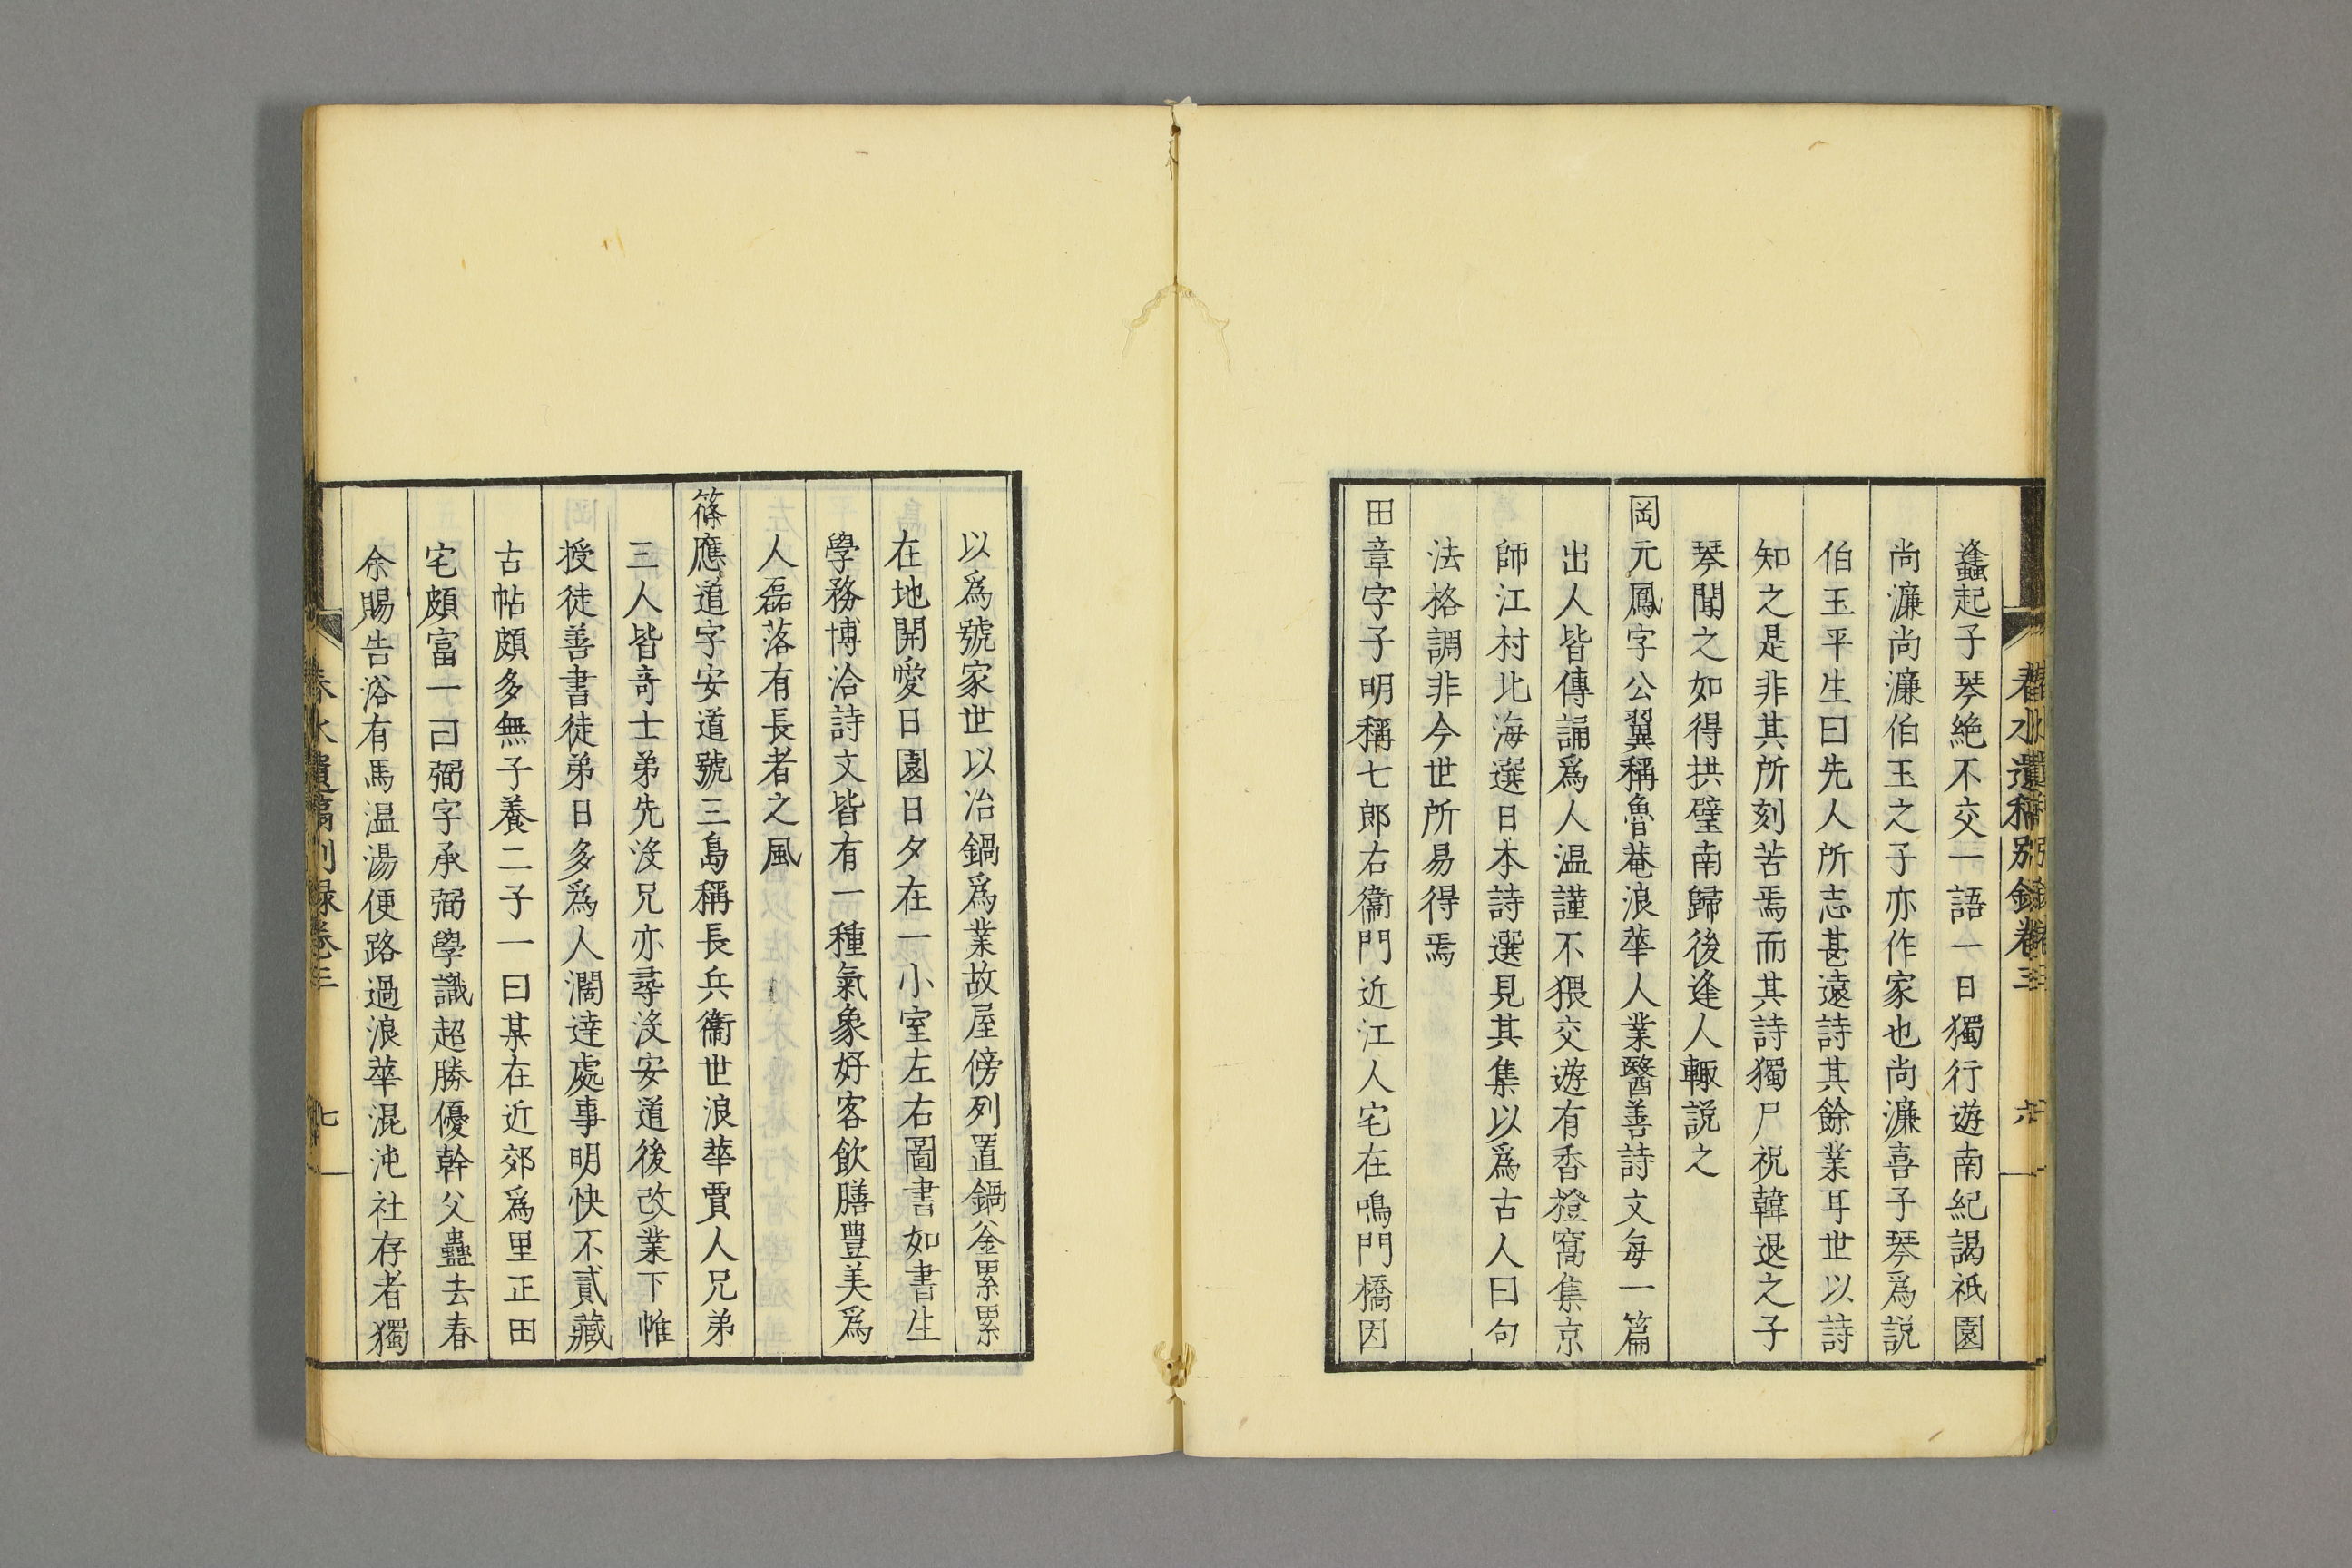 春水遺稿別錄卷三 六
蠭起子琴絶不交一語一日獨行遊南紀謁祇園
尚濂尚濂伯玉之子亦作家也尚濂喜子琴爲説
伯玉平生曰先人所志甚遠詩其餘業耳世以詩
知之是非其所刻苦焉而其詩獨尸祝韓退之子
琴聞之如得拱璧南歸後逢人輙説之
岡元鳳字公翼稱魯菴浪華人業醫善詩文每一篇
出人皆傳誦爲人温謹不猥交遊有香橙窩集京
師江村北海選日本詩選見其集以爲古人曰句
法格調非今世所易得焉
田章字子明稱七郎右衞門近江人宅在鳴門橋因
以爲號家世以冶鍋爲業故屋傍列置鍋釜累累
在地開愛日園日夕在一小室左右圖書如書生
學務博洽詩文皆有一種氣象好客飲膳豊美爲
人磊落有長者之風
篠應道字安道號三島稱長兵衞世浪華賈人兄弟
三人皆奇士弟先沒兄亦尋沒安道後改業下帷
授徒善書徒弟日多爲人濶達處事明快不貳藏
古帖頗多無子養二子一曰某在近郊爲里正田
宅頗富一曰弼字承弼學識超勝優幹父蠱去春
余賜告浴有馬温湯便路過浪華混沌社存者獨
春水遺稿別録卷三 七